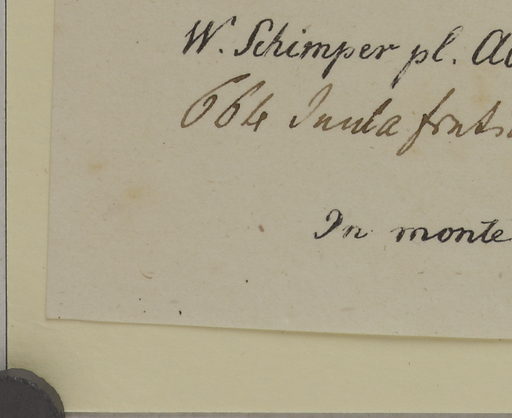 W. Schimper pl. A
664 Inula frut
In monte